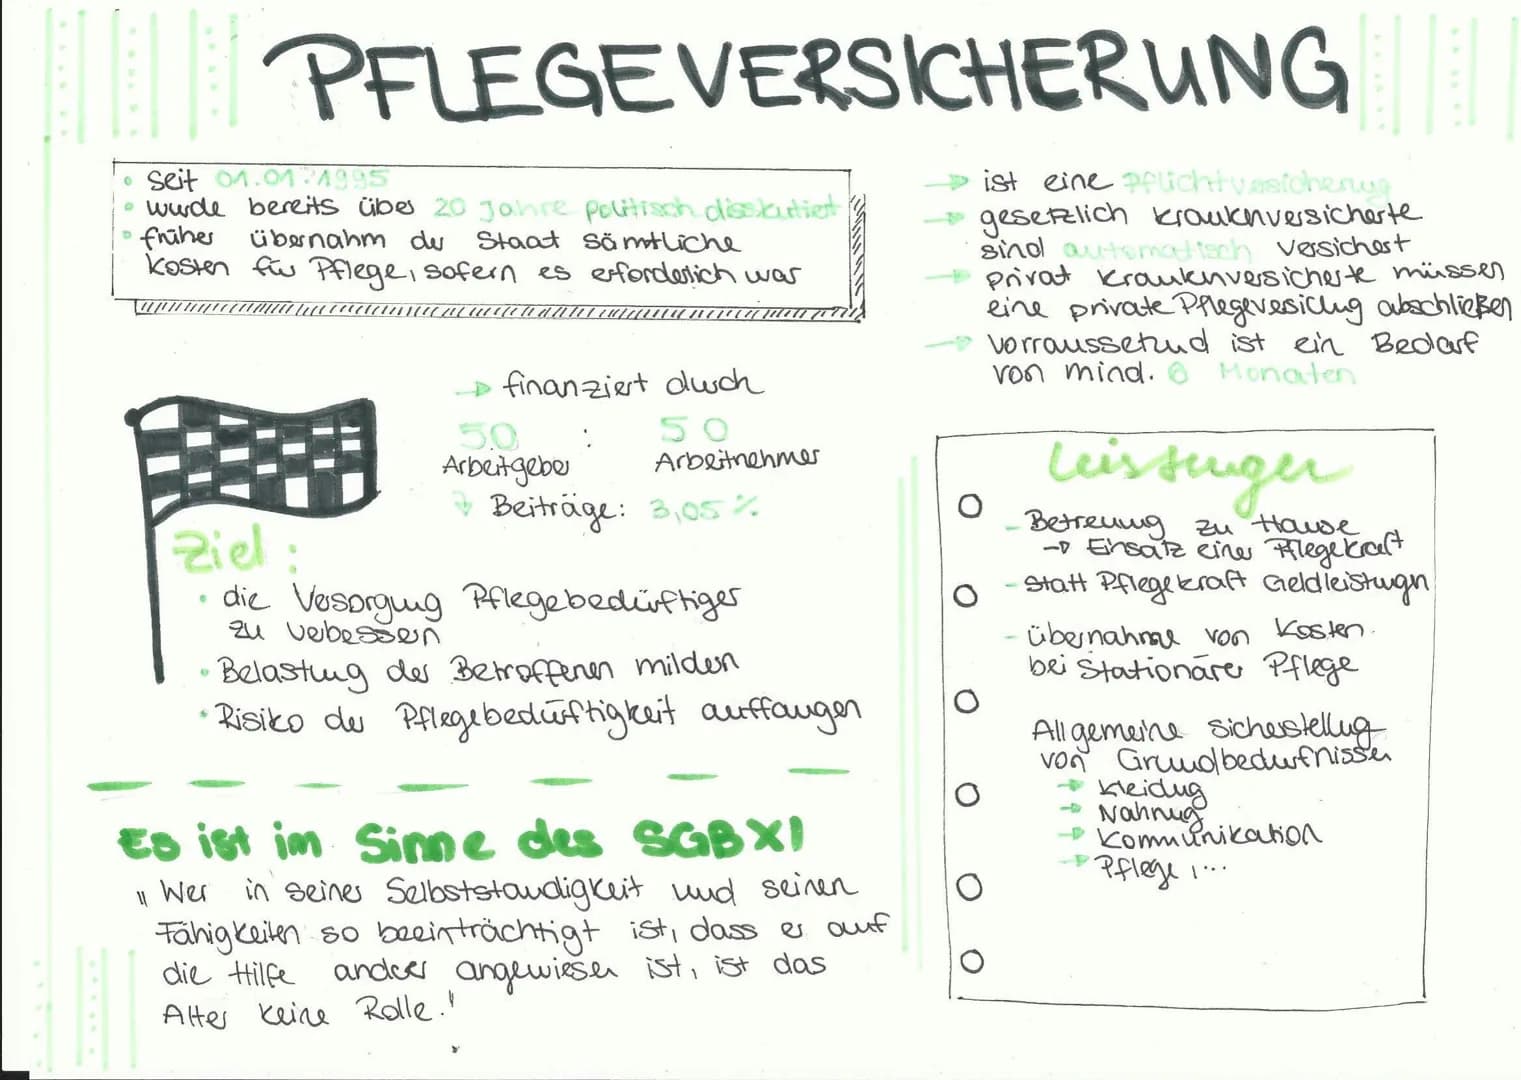 PFLEGEVERSICHERUNG
• seit 01.01.1995
• wurde bereits über 20 Jahre politisch disskutiert
• früher übernahm der Staat sämtliche
Kosten für Pflege, sofern es erforderlich war
→ ist eine Pflichtversicherung
→ gesetzlich krankenversicherte
sind automatisch versichert
→ privat krankenversicherte müssen
eine private Pflegeversichrg abschließen
→ vorraussetzud ist ein Bedarf
von mind. 6 Monaten
→ finanziert durch
50 : 50
Arbeitgeber Arbeitnehmer
↓ Beiträge: 3,05 %
Ziel:
• die Versorgung Pflegebedürftiger
zu verbessern
• Belastung der Betroffenen mildern
• Risiko der Pflegebedürftigkeit auffangen
Leistungen
- Betreuung zu Hause
→ Einsatz einer Pflegekraft
- statt Pflegekraft Geldleistungn
- übernahme von Kosten
bei Stationärer Pflege
Allgemeine Sicherstellug
von Grundbedürfnissen
→ Kleidug
→ Nahrug
→ Kommunikation
→ Pflege, ...
Es ist im Sinne des SGB XI
„Wer in seiner Selbstständigkeit und seinen
Fähigkeiten so beeinträchtigt ist, dass er auf
die Hilfe anderer angewiesen ist, ist das
Alter keine Rolle."